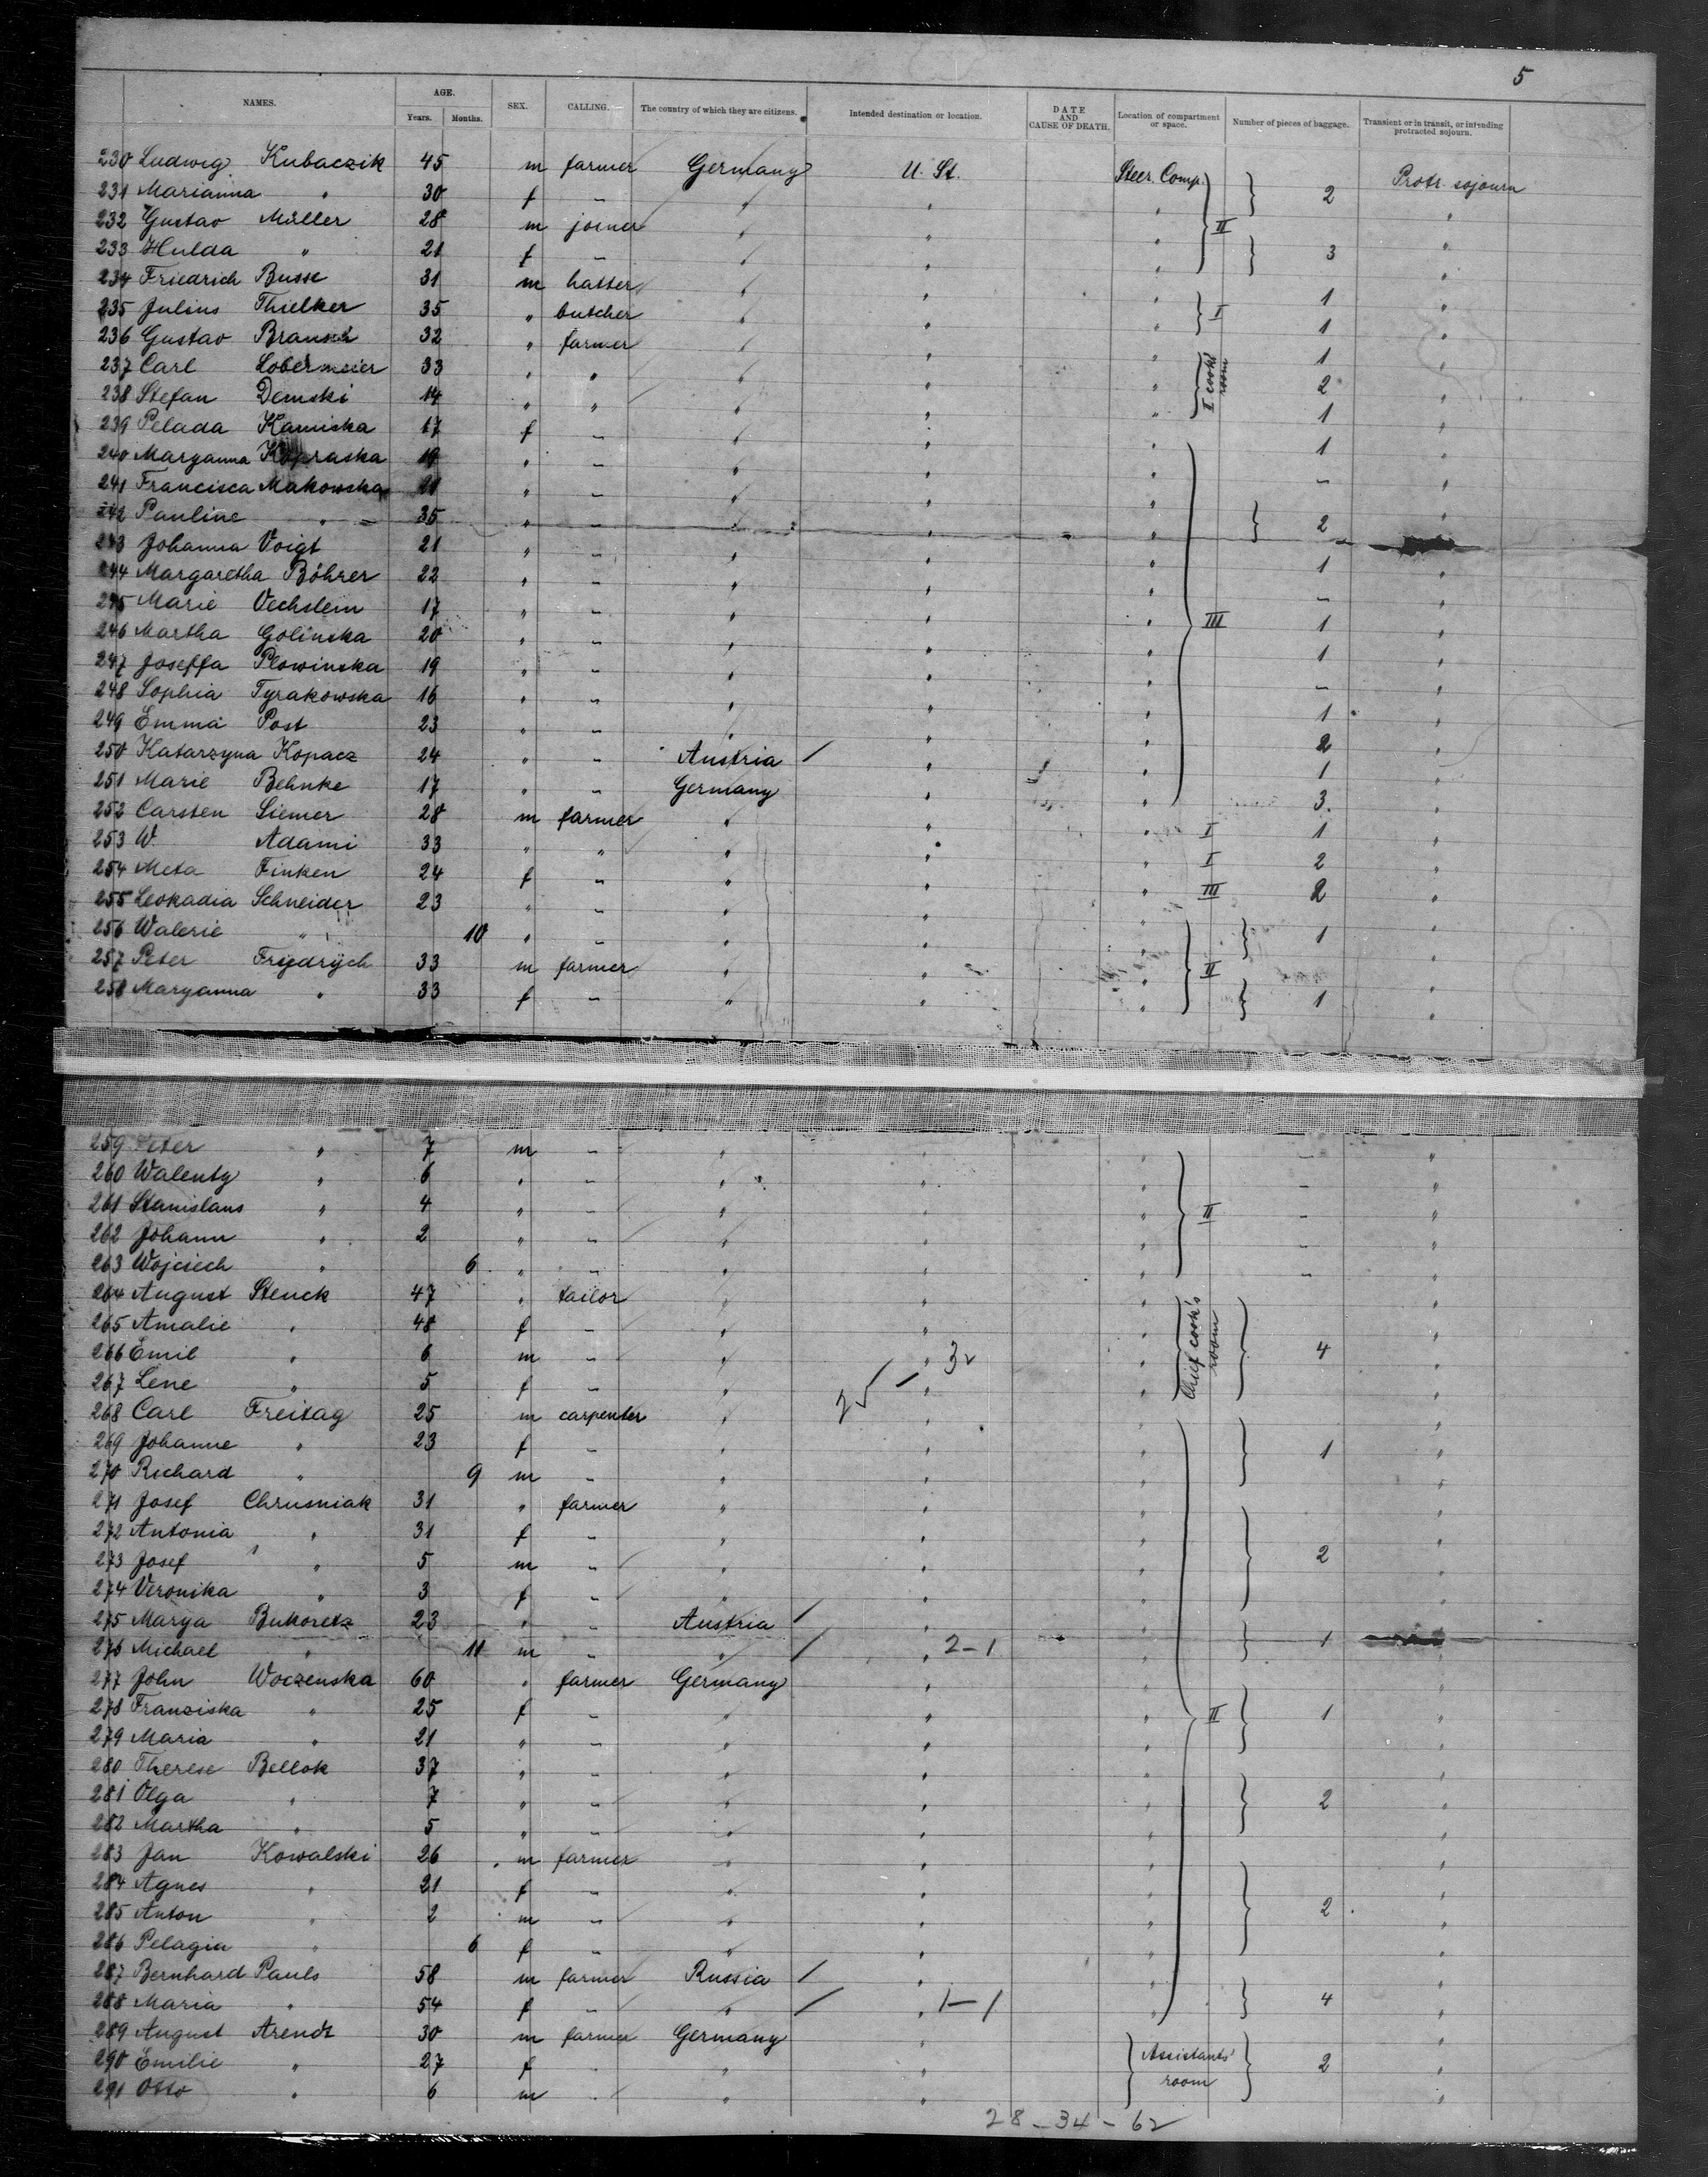 5
NAMES. AGE. Years. Months. SEX. CALLING. The country of which they are citizens. Intended destination or location. DATE AND CAUSE OF DEATH. Location of compartment or space. Number of pieces of baggage. Transient or in transit, or intending protracted sojourn.
230 Ludwig Kubaczik 45 m farmer Germany U. St. Steer. Comp. Protr. sojourn
231 Marianna " 30 f - " " " 2 "
232 Gustav Müller 28 m joiner " " " II "
233 Hulda " 21 f - " " " 3 "
234 Friedrich Busse 31 m hatter " " " 1 "
235 Julius Thielker 35 " butcher " " " I 1 "
236 Gustav 32 " farmer " " " 1 "
237 Carl Lobermeier 33 " " " " " I cook's room 2 "
238 Stefan Demski 14 " " " " " 1 "
239 Pelada Kamiska 17 f - " " " 1 "
240 Maryanna Kopraska 19 " - " " " - "
241 Francisca Makowska 21 " - " " " "
242 Pauline " 35 " - " " " 2
243 Johanna Voigt 21 " - " " " 1 "
244 Margaretha Böhrer 22 " - " " " - "
245 Marie Vechslein 17 " - " " " III 1 "
246 Martha Golinska 20 " - " " " 1 "
247 Joseffa Plowinska 19 " - " " " - "
248 Sophia Tyrakowska 16 " - " " " 1 "
249 Emma Post 23 " - " " " 2 "
250 Katarzyna Kopacz 24 " - Austria / " " 1 "
251 Marie Behnke 17 " - Germany " " 3. "
252 Carsten Siemer 28 m farmer " " " I 1 "
253 W. Adami 33 " " " " " I 2 "
254 Meta Finken 24 f - " " " III 2 "
255 Leokadia Schneider 23 " - " " "
256 Walerie " 10 " - " " " 1 "
257 Peter Frydrych 33 m farmer " " " II "
258 Maryanna " 33 f - " " " 1 "
259 Peter " 7 m - " " " - "
260 Walenty " 6 " - " " " - "
261 Stanislaus " 4 " - " " " II - "
262 Johann " 2 " - " " " - "
263 Wojciech " 6 " - " " " - "
264 August Stenck 47 " tailor " " " "
265 Amalie " 48 f - " " " Chief cook's room "
266 Emil " 6 m - " " 32 " 4 "
267 Lene " 5 f - " "
268 Carl Freitag 25 m carpenter " " " "
269 Johanne " 23 f - " " " 1 "
270 Richard " 9 m - " " " "
271 Josef Chrusniak 31 " farmer " " " "
272 Antonia " 31 f - " " " "
273 Josef " 5 m - " " " 2 "
274 Veronika " 3 f - " " " "
275 Marya 23 " - Austria / " " "
276 Michael " 11 m - " / " 2-1 " 1
277 John Woczenska 60 " farmer Germany " " "
278 Franziska " 25 f - " " " II 1 "
279 Maria " 21 " - " " " "
280 Therese Bellok 37 " - " " " "
281 Olga " 7 " - " " " 2 "
282 Martha " 5 " - " " " "
283 Jan Kowalski 26 m farmer " " " "
284 Agnes " 21 f - " " " "
285 Anton " 2 m - " " " 2 "
286 Pelagia " 6 f - " " " "
287 Bernhard Pauls 58 m farmer Russia / " " "
288 Maria " 54 f - " / " 1-1 " 4 "
289 August Arendt 30 m farmer Germany " "
290 Emilie " 27 f - " " Assistants' room 2 "
291 Otto " 6 m - " " "
28-34-62